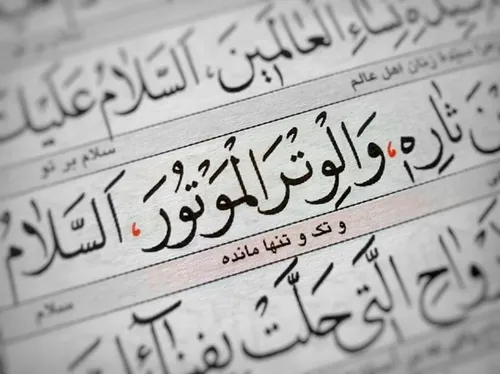 سَيِّدَةِ نِسَاءِ الْعَالَمِينَ، اَلسَّلَامُ عَلَيْكَ
سیّدهٔ زنان اهل عالم سلام بر تو
ثَارِهِ، وَالْوِتْرَ الْمَوْتُورَ، اَلسَّلَامُ
و تک و تنها مانده سلام
الَّتِي حَلَّتْ بِفِنَائِكَ